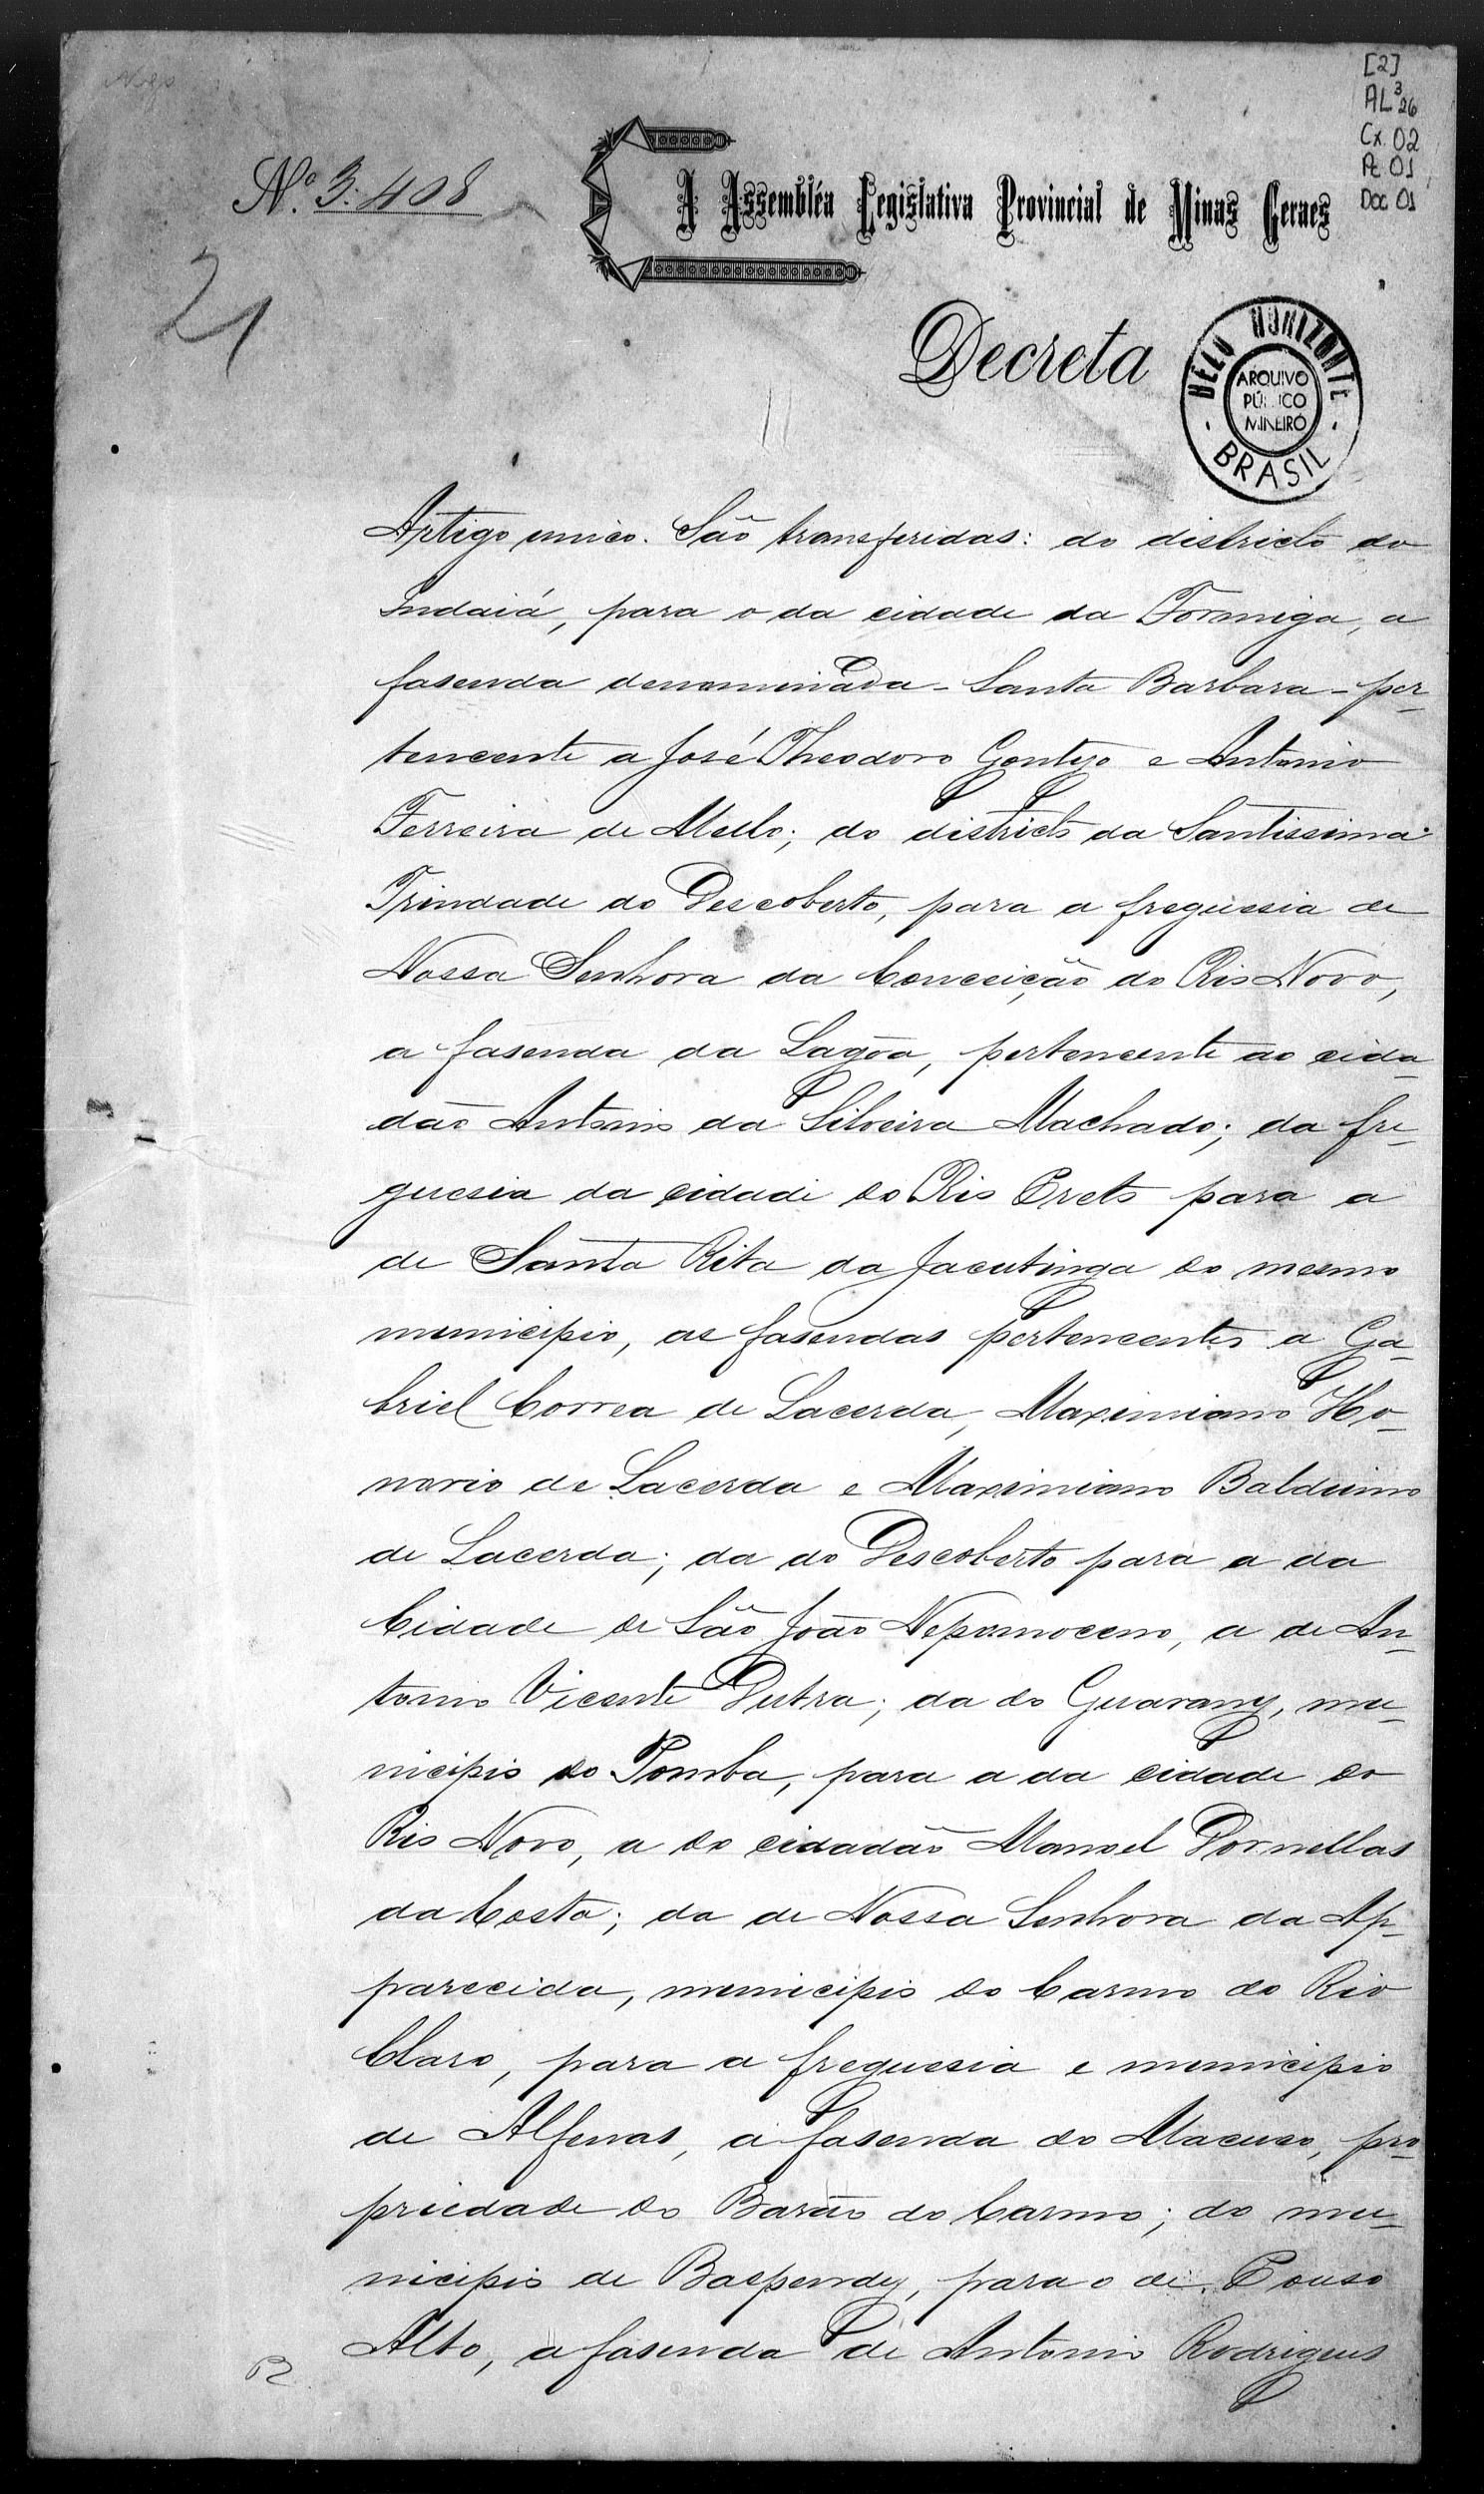 [2]
AL³26
Cx. 02
Pc 01
Doc 01
Nº 3.408
A Assembléa Legislativa Provincial de Minas Geraes
21
Decreta
BELO HORIZONTE
ARQUIVO
PÚBLICO
MINEIRO
BRASIL
Artigo unico. São transferidas: do districto do
Indaiá, para o da cidade da Formiga, a
fasenda denominada - Santa Barbara - per-
tencente a José Theodoro Gontijo e Antonio
Ferreira de Mello; do districto da Santissima
Trindade do Descoberto, para a freguesia de
Nossa Senhora da Conceição do Rio Novo,
a fasenda da Lagôa, pertencente ao cida-
dão Antonio da Silveira Machado; da fre-
guesia da cidade do Rio Preto para a
de Santa Rita da Jacutinga do mesmo
municipio, as fasendas pertencentes a Ga-
briel Correa de Lacerda, Maximiano Ho-
norio de Lacerda e Maximiano Balduino
de Lacerda; da do Descoberto para a da
Cidade de São João Nepomoceno, a de An-
tonio Vicente Dutra; da do Guarany, mu-
nicipio do Pomba, para a da cidade do
Rio Novo, a do cidadão Manoel Dornellas
da Costa; da de Nossa Senhora da Ap-
parecida, municipio do Carmo do Rio
Claro, para a freguesia e municipio
de Alfenas, a fasenda do Macuco, pro-
priedade do Barão do Carmo; do mu-
nicipio de Baependy, para o de Pouso
Alto, a fasenda de Antonio Rodrigues